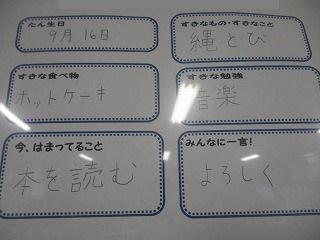 たん生日
9月16日
すきなもの・すきなこと
縄とび
すきな食べ物
ホットケーキ
すきな勉強
音楽
今、はまってること
本を読む
みんなに一言!
よろしく